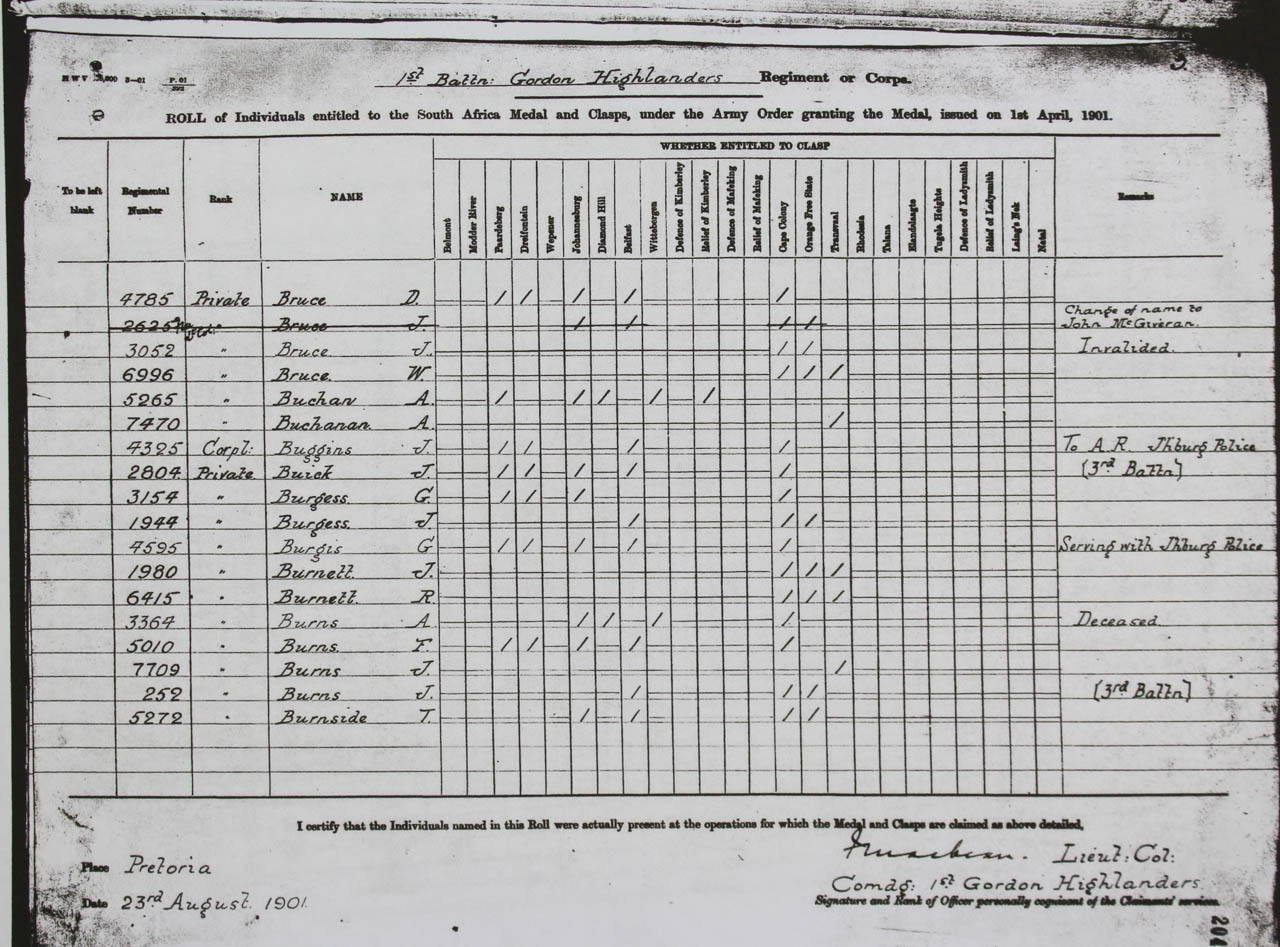 3
H W V 3-01 P. 01
1st Battn: Gordon Highlanders Regiment or Corps.
ROLL of Individuals entitled to the South Africa Medal and Clasps, under the Army Order granting the Medal, issued on 1st April, 1901.
WHETHER ENTITLED TO CLASP
To be left blank Regimental Number Rank NAME Belmont Modder River Paardeberg Dreifontein Wepener Johannesburg Diamond Hill Belfast Wittebergen Defence of Kimberley Relief of Kimberley Defence of Mafeking Relief of Mafeking Cape Colony Orange Free State Transvaal Rhodesia Talana Elandslaagte Tugela Heights Defence of Ladysmith Relief of Ladysmith Laing's Nek Natal Remarks
4785 Private Bruce D. / / / / /
2625 " Bruce J. / / / / Change of name to John McGiveran.
3052 " Bruce J. / / Invalided.
6996 " Bruce. W. / / /
5265 " Buchan A. / / / / /
7470 " Buchanan. A. /
4325 Corpl: Buggins J. / / / / To A. R. Jhburg Police
2804 Private Buick J. / / / / / (3rd Battn)
3154 " Burgess. G. / / / /
1944 " Burgess. J. / / /
4595 " Burgis G / / / / / Serving with Jhburg Police
1980 " Burnett. J. / / /
6415 " Burnett. R. / / /
3364 " Burns A. / / / / Deceased.
5010 " Burns. F. / / / / /
7709 " Burns J. /
252 " Burns J. / / / (3rd Battn)
5272 " Burnside T. / / / /
I certify that the Individuals named in this Roll were actually present at the operations for which the Medal and Clasps are claimed as above detailed,
Place Pretoria
Lieut: Col:
Comdg: 1st Gordon Highlanders.
Date 23rd August. 1901.
Signature and Rank of Officer personally cognisant of the Claimants' services.